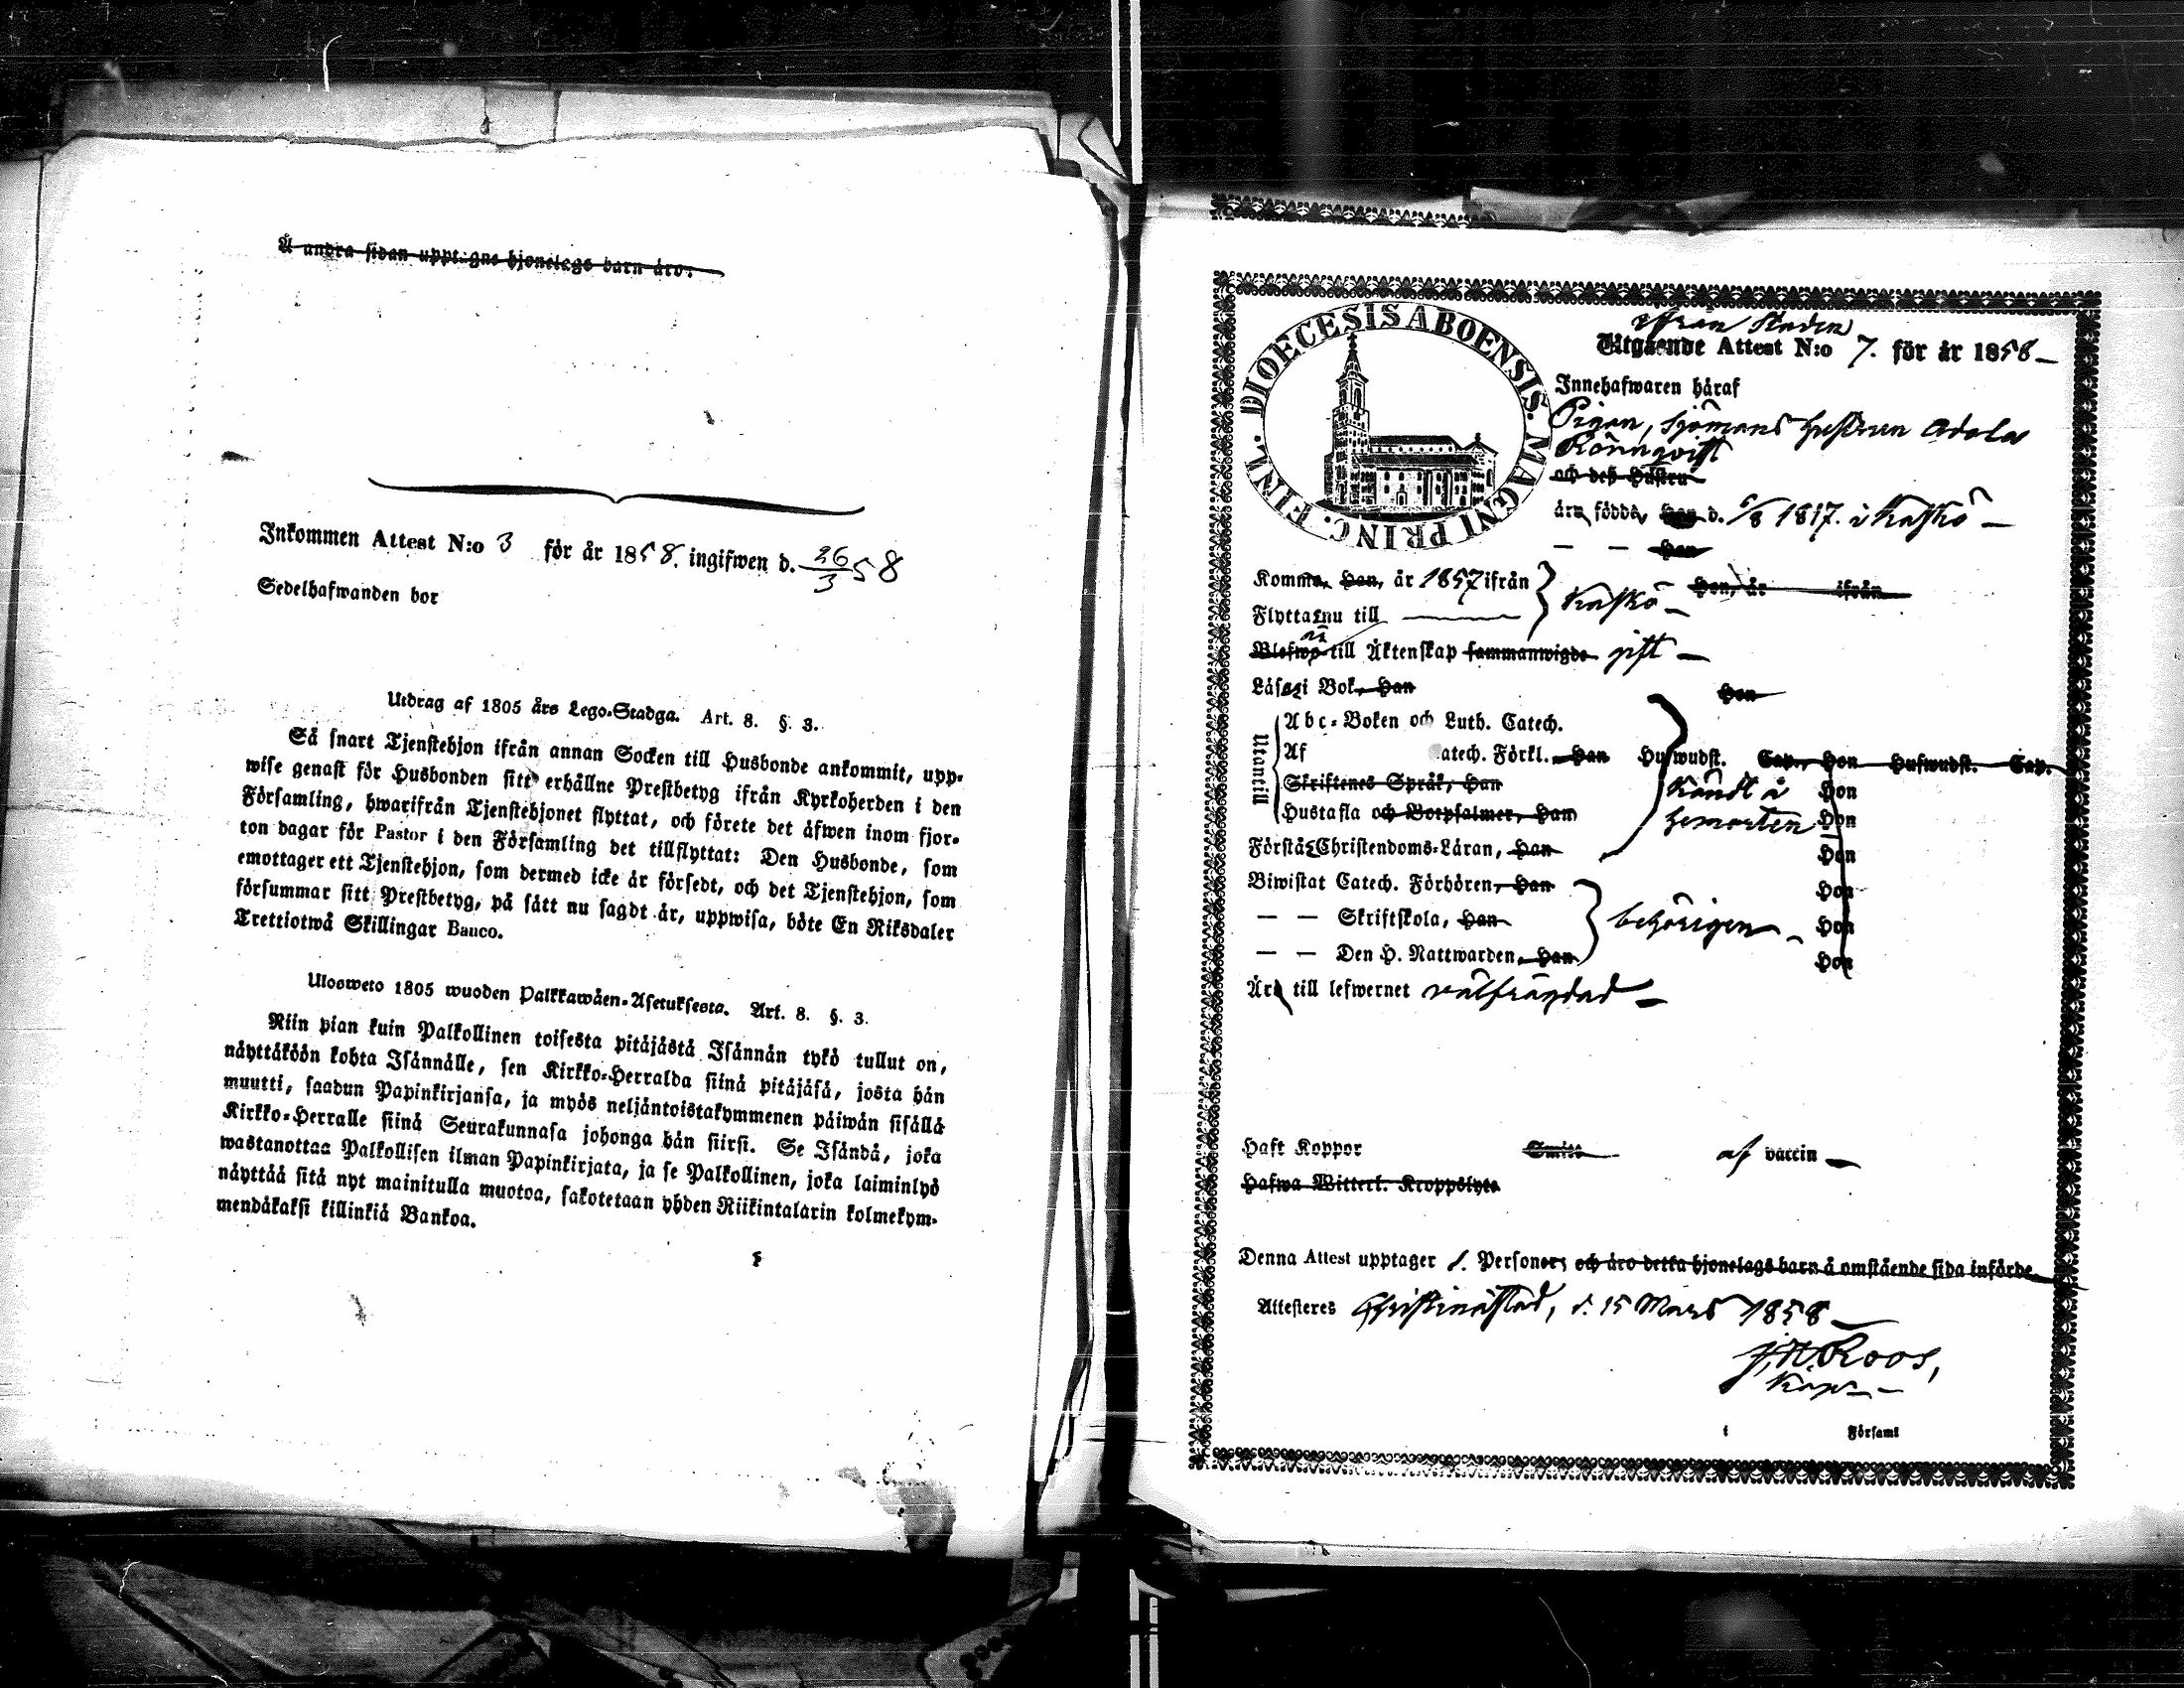 Å andra sidan upptagne hjonelags barn äro:
Inkommen Attest N:o 3 för år 1858. ingifwen d. 26/3 58
Sedelhafwanden bor
Utdrag af 1805 års Lego-Stadga. Art. 8. §. 3.
Så snart Tjenstehjon ifrån annan Socken till Husbonde ankommit, upp-
wise genast för Husbonden sitt erhållne Prestbetyg ifrån Kyrkoherden i den
Församling, hwarifrån Tjenstehjonet flyttat, och förete det äfwen inom fjor-
ton dagar för Pastor i den Församling det tillflyttat: Den Husbonde, som
emottager ett Tjenstehjon, som dermed icke är försedt, och det Tjenstehjon, som
försummar sitt Prestbetyg, på sätt nu sagdt är, uppwisa, böte En Riksdaler
Trettiotwå Skillingar Banco.
Ulosweto 1805 wuoden Palkkawäen-Asetuksesta. Art. 8. §. 3.
Niin pian kuin Palkollinen toisesta pitäjästä Isännän tykö tullut on,
näyttäköön kohta Isännälle, sen Kirkko-Herralda siinä pitäjäsä, josta hän
muutti, saadun Papinkirjansa, ja myös neljäntoistakymmenen päiwän sisällä
Kirkko-Herralle siinä Seurakunnasa johonga hän siirsi. Se Isändä, joka
wastanottaa Palkollisen ilman Papinkirjata, ja se Palkollinen, joka laiminlyö
näyttää sitä nyt mainitulla muotoa, sakotetaan yhden Riikintalarin kolmekym-
mendäkaksi killinkiä Bankoa.
DIOECESIS ABOENSIS. MAGNI PRINC. FINL.
ifrån Staden
Utgående Attest N:o 7. för år 1858
Innehafwaren häraf
Pigan, Sjömans hustrun Adola
Rönnqvist
och deß Hustru
äro födde, Han d. 6/8 1817. i Kaskö
— — Hon
Komme, Han, år 1857 ifrån Kaskö Hon, år ifrån
Flytta nu till
Blefwo till Äktenskap sammanwigde gift
Läsa i Bok, Han Hon
Utantill
Abc-Boken och Luth. Catech.
Af Catech. Förkl. Han Hufwudst. Cap. Hon Hufwudst. Cap.
Skriftenes Språk, Han Hon
Hustafla och Botpsalmer, Han Hon
Förstå Christendoms-Läran, Han Hon
Biwistat Catech. Förhören, Han Hon
— — Skriftskola, Han behörigen Hon
— — Den H. Nattwarden, Han Hon
Äro till lefwernet välfrägdad
Haft Koppor Smitt af vaccin
Hafwa Witterl. Kroppslyte
Denna Attest upptager 1. Personer; och äro detta hjonelags barn å omstående sida införde
Attesteres Christinæstad, d. 15 Mars 1858
J. N. Roos,
Kapn
i Församl